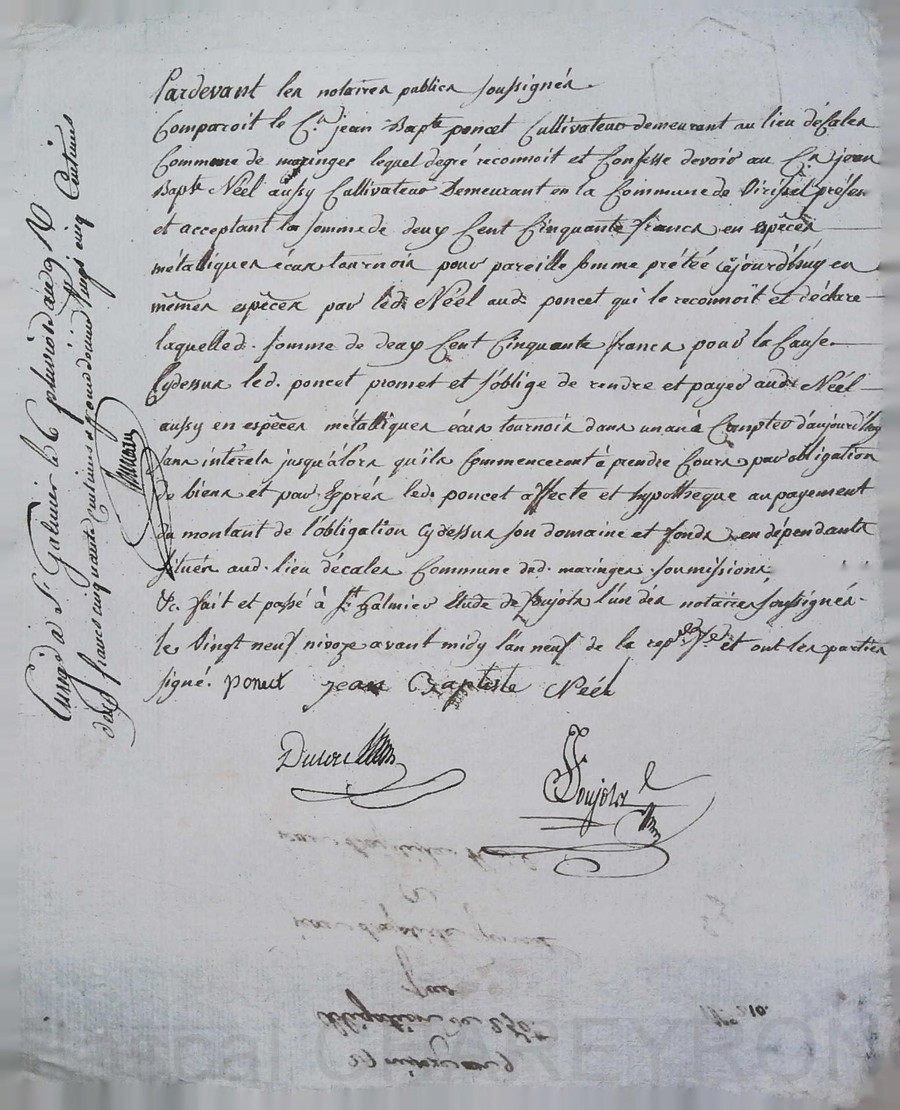 Pardevant les notaires publics soussignés
Comparoit le C.en jean Bapte poncet Cultivateur demeurant au lieu décales
Commune de maringes lequel degré reconnoit et Confesse devoir au C.en jean
Bapte Néel aussy Cultivateur Demeurant en la Commune de Viricel présen
et acceptant la somme de deux Cent Cinquante francs en espèces
métalliques écus tournois pour pareille somme prétée cejourd'huy en
mêmes espèces par led. Néel aud. poncet qui le reconnoît et déclare
laquelled. somme de deux Cent Cinquante francs pour la Cause
Cydessus led. poncet promet et s'oblige de rendre et payer aud. Néel
aussy en espèces métalliques écus tournois dans un an à Compter d'aujourd'huy
sans intérets jusqu'alors qu'ils Commenceront à prendre Cours par obligation
de biens et par Exprès led. poncet affecte et hypothèque au payement
du montant de l'obligation Cydessus son domaine et fonds en dépendants
situés aud. lieu décales Commune dud. maringes soumissions
&c. fait et passé à St Galmier Etude de Poujols l'un des notaires soussignés
le Vingt neuf nivoze avant midy l'an neuf de la repque fse et ont les parties
signé. poncet jean Baptiste Néel
Poujols
Enrgé à St Galmier le 6 pluviose an 9 Ro
deux francs cinquante Centimes et pour décime vingt cinq Centimes
29 nivoze an 9
obligation de 250 f.
par
jean Baptiste poncet
a
jean Baptiste Néel
No 210.